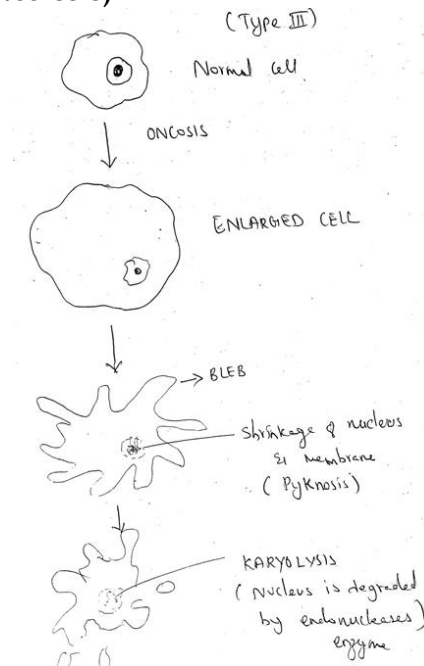 (Type III)
Normal Cell
ONCOSIS
ENLARGED CELL
BLEB
Shrinkage of nucleus
& membrane
(Pyknosis)
KARYOLYSIS
(Nucleus is degraded
by endonucleases)
enzyme